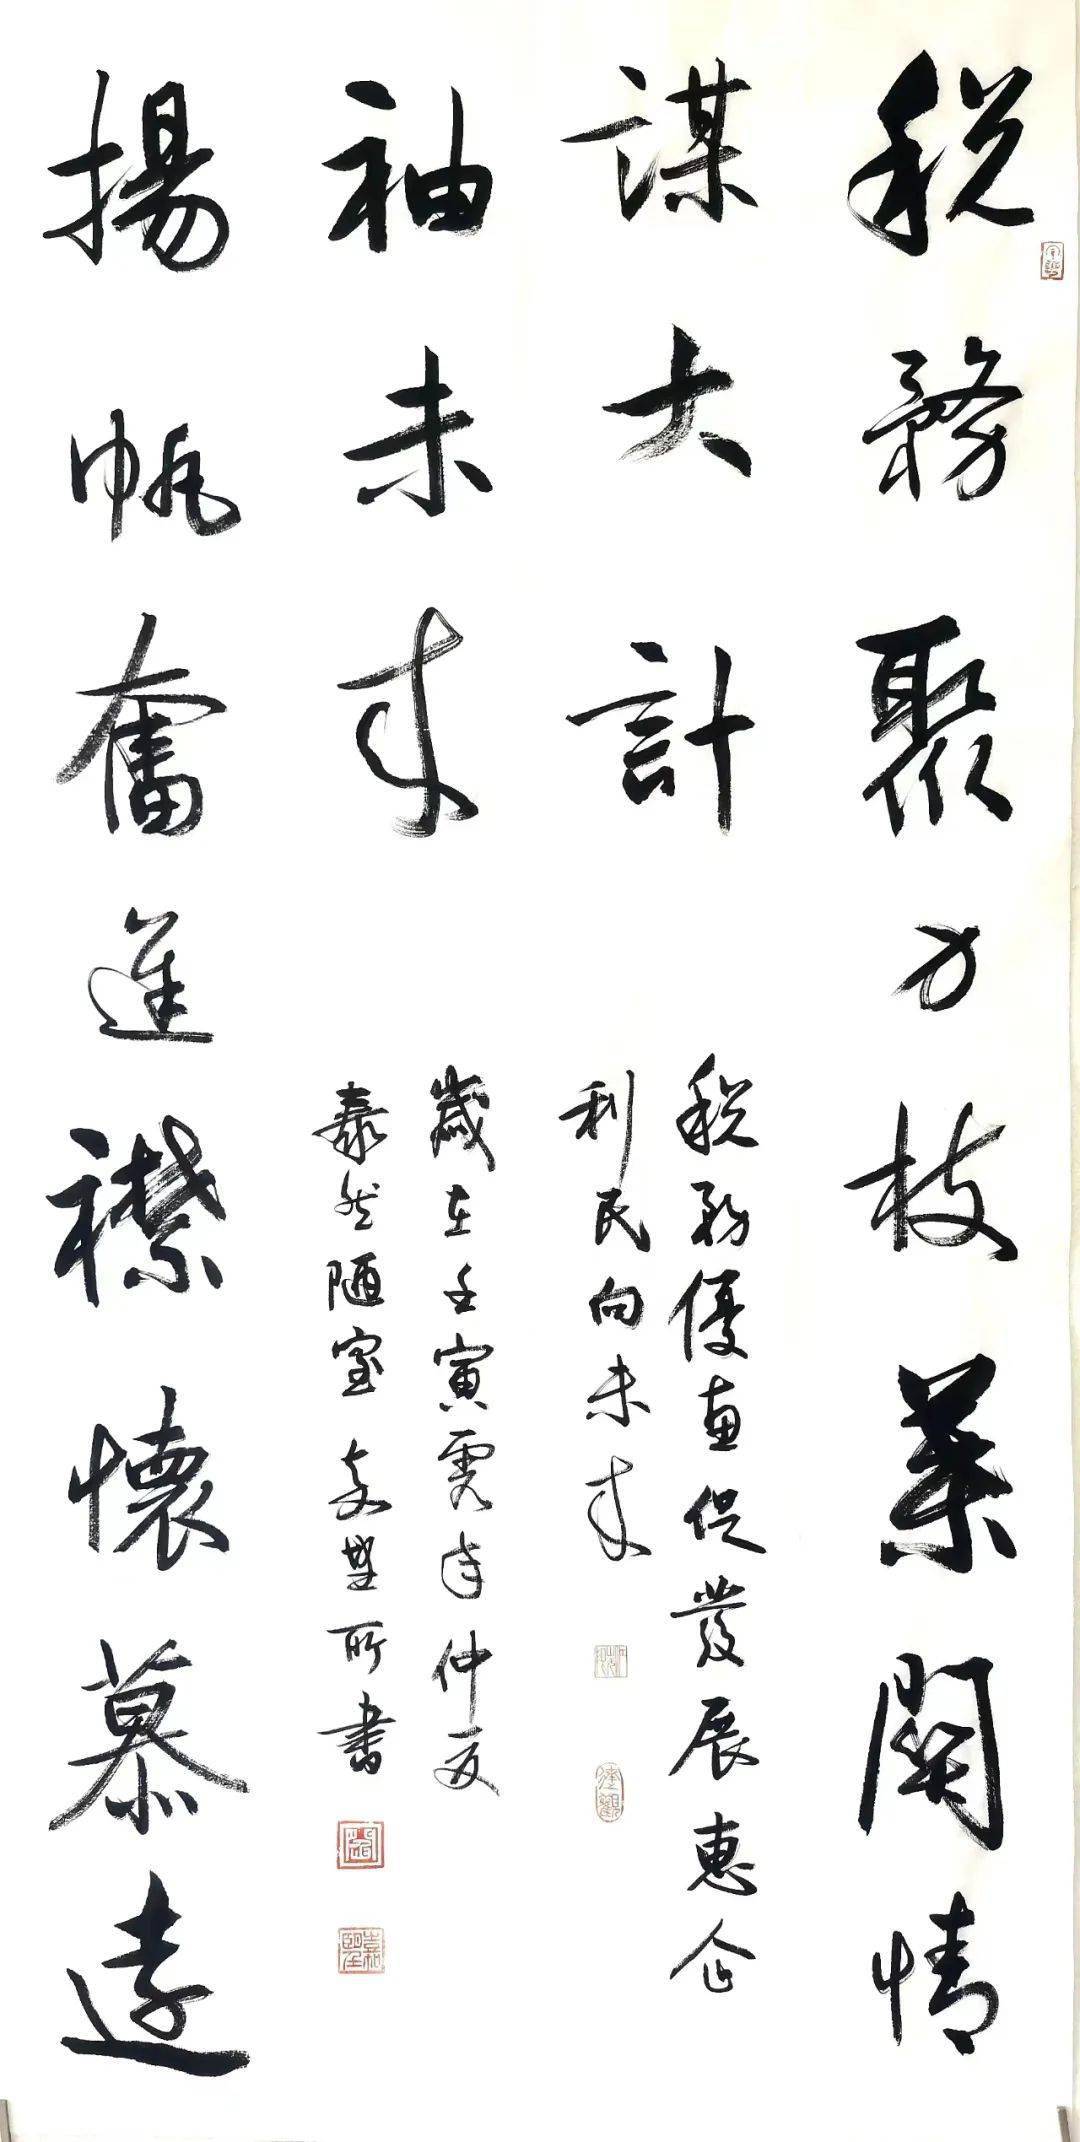 税務聚力枝葉關情
謀大計
税務優惠促發展惠企
利民向未來
揚帆奮進襟懷慕遠
袖未來
歲在壬寅虎年仲夏
泰然陋室 所書